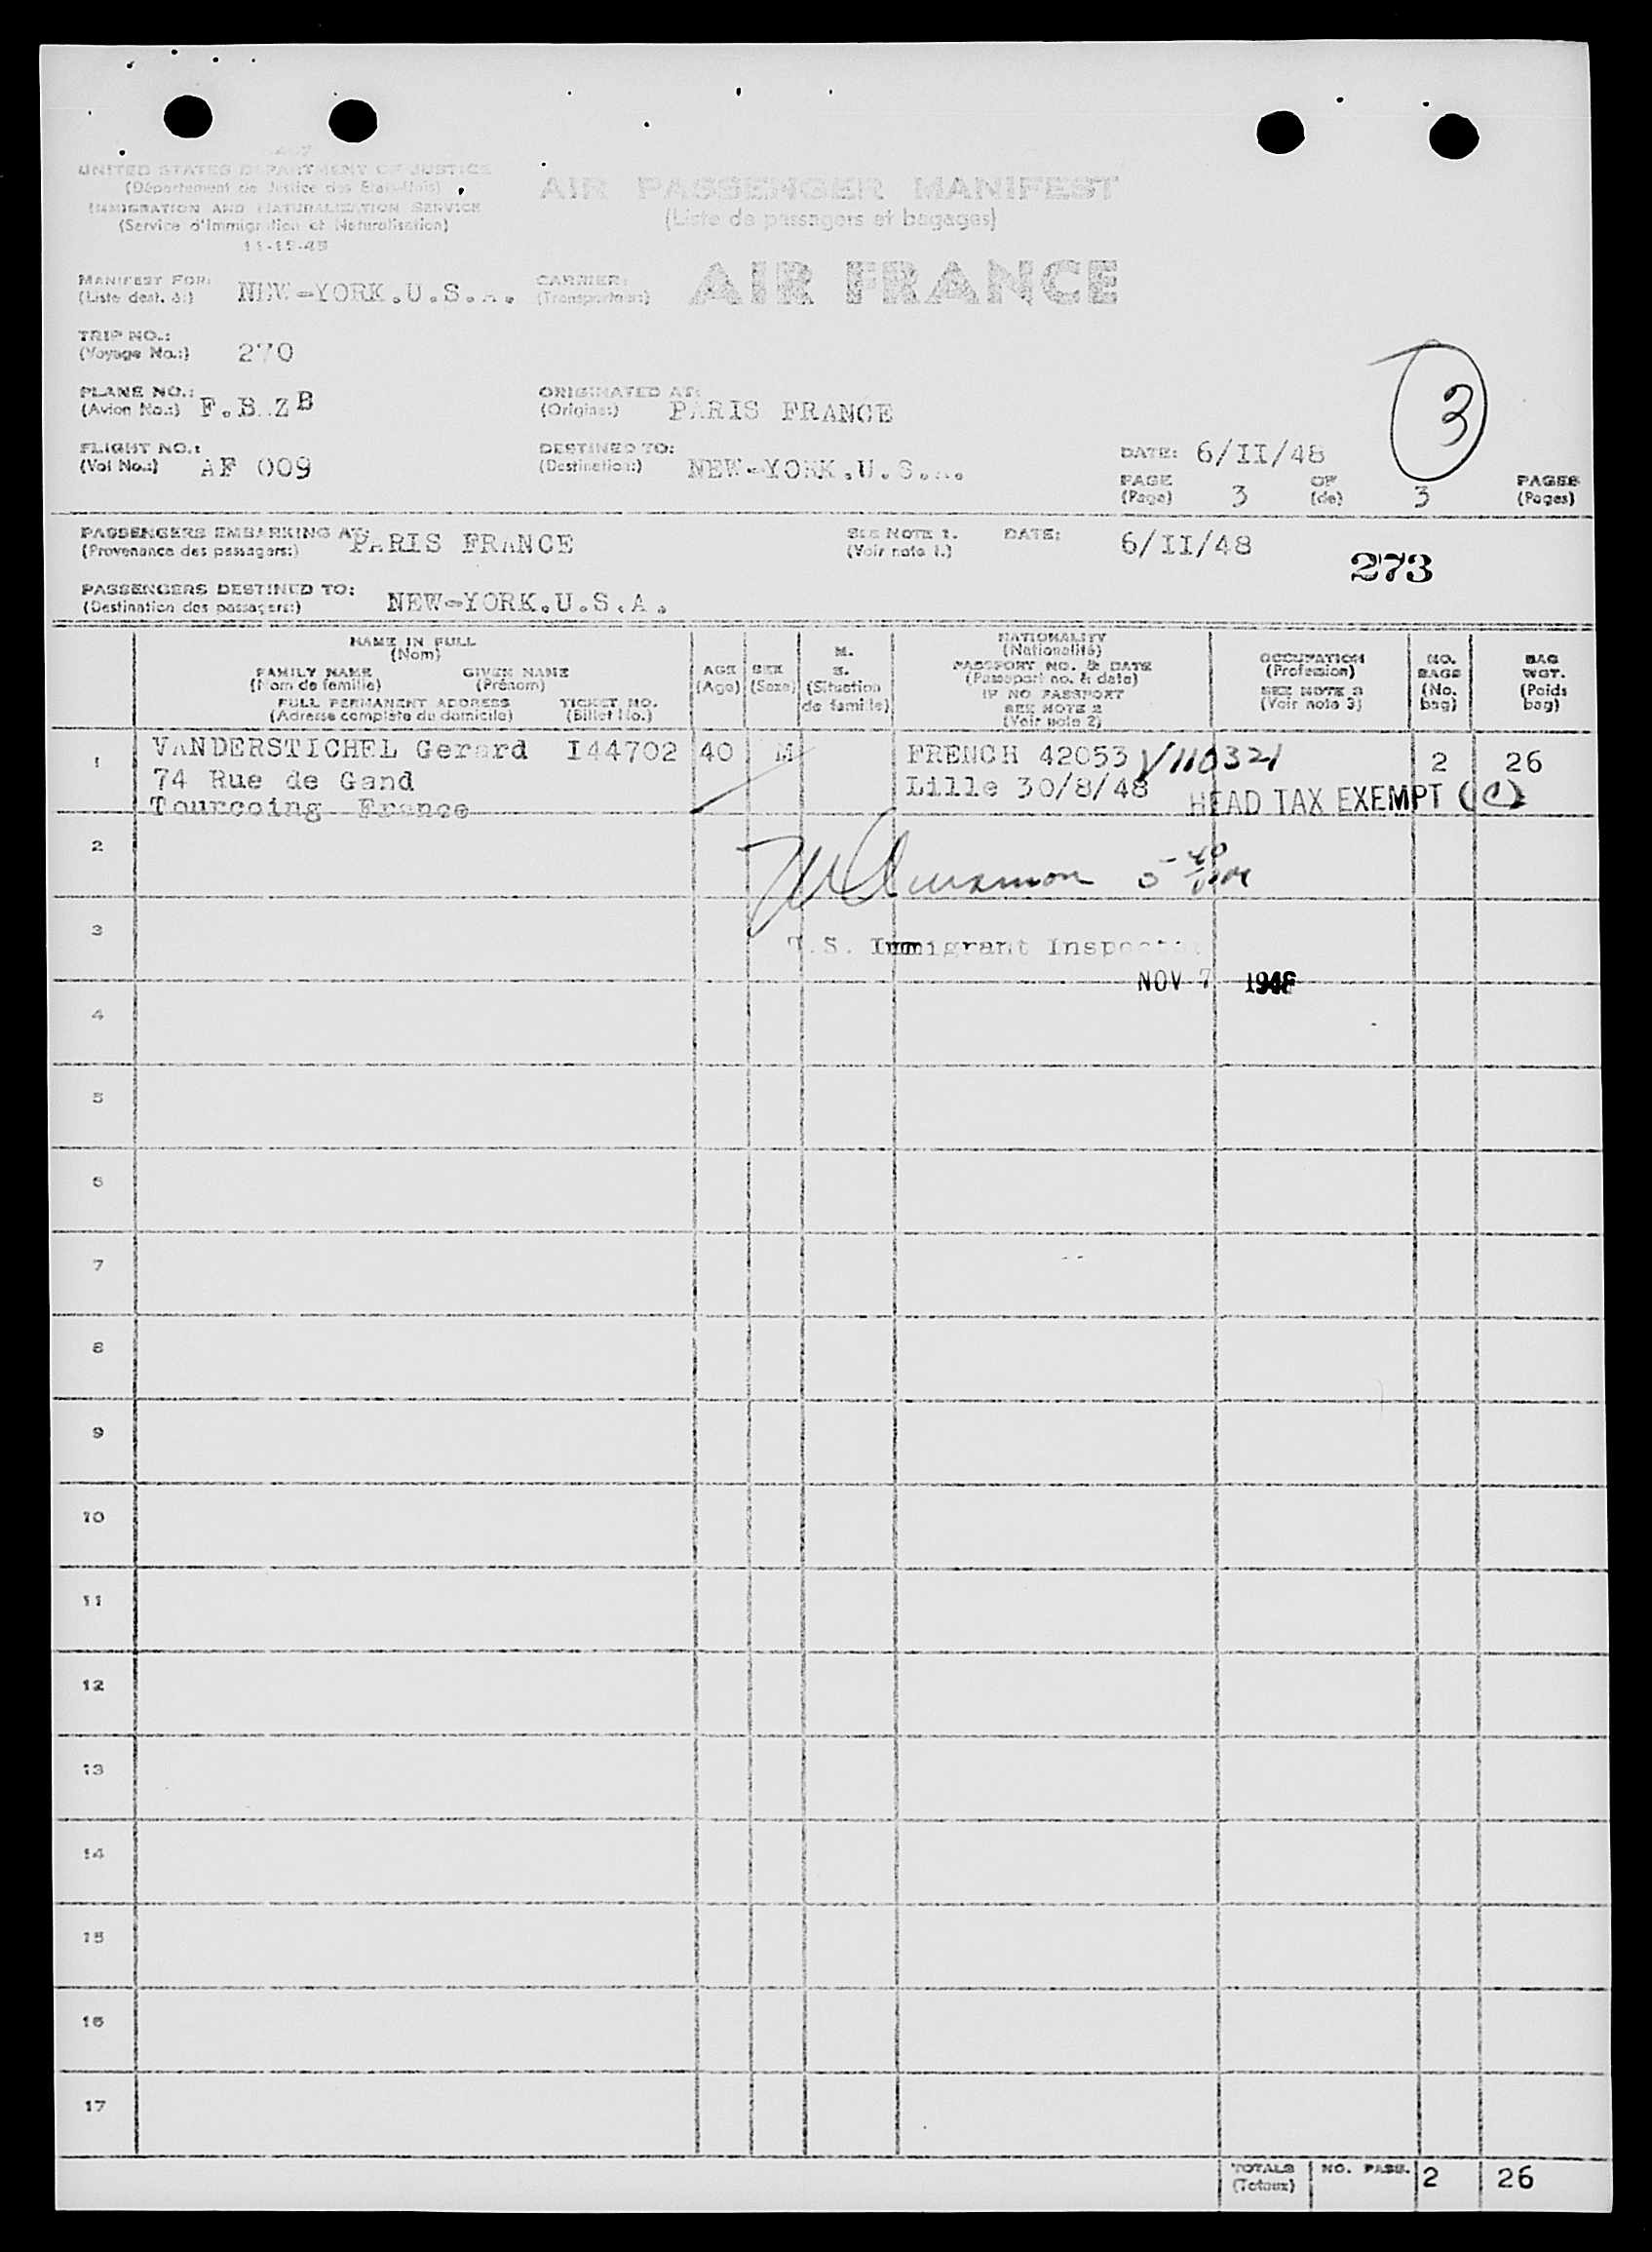 UNITED STATES DEPARTMENT OF JUSTICE
(Département de Justice des Etats-Unis)
IMMIGRATION AND NATURALIZATION SERVICE
(Service d'Immigration et Naturalisation)
11-15-45
AIR PASSENGER MANIFEST
(Liste de passagers et bagages)
MANIFEST FOR: NEW-YORK.U.S.A.
(Liste dest. à:)
CARRIER: AIR FRANCE
(Transporteur:)
TRIP NO.: 270
(Voyage No.:)
3
PLANE NO.: F.B.ZB
(Avion No.:)
ORIGINATED AT: PARIS FRANCE
(Origine:)
FLIGHT NO.: AF 009
(Vol No.:)
DESTINED TO: NEW-YORK.U.S.A.
(Destination:)
DATE: 6/II/48
PAGE 3 OF 3 PAGES
(Page) (de) (Pages)
PASSENGERS EMBARKING AT: PARIS FRANCE
(Provenance des passagers:)
SEE NOTE 1. DATE: 6/II/48
(Voir note 1.)
273
PASSENGERS DESTINED TO: NEW-YORK.U.S.A.
(Destination des passagers:)
NAME IN FULL
(Nom)
FAMILY NAME GIVEN NAME
(Nom de famille) (Prénom)
FULL PERMANENT ADDRESS TICKET NO.
(Adresse complète du domicile) (Billet No.)
AGE
(Age)
SEX
(Sexe)
M.
S.
(Situation
de famille)
NATIONALITY
(Nationalité)
PASSPORT NO. & DATE
(Passeport no. & date)
IF NO PASSPORT
SEE NOTE 2
(Voir note 2)
OCCUPATION
(Profession)
SEE NOTE 3
(Voir note 3)
NO.
BAGS
(No.
bag)
BAG
WGT.
(Poids
bag)
1 VANDERSTICHEL Gerard I44702 40 M FRENCH 42053 V110321 2 26
74 Rue de Gand Lille 30/8/48 HEAD TAX EXEMPT (C)
Tourcoing France
2
3
U.S. Immigrant Inspector
NOV 7 1948
4
5
6
7
8
9
10
11
12
13
14
15
16
17
TOTALS NO. PASS. 2 26
(Totaux)